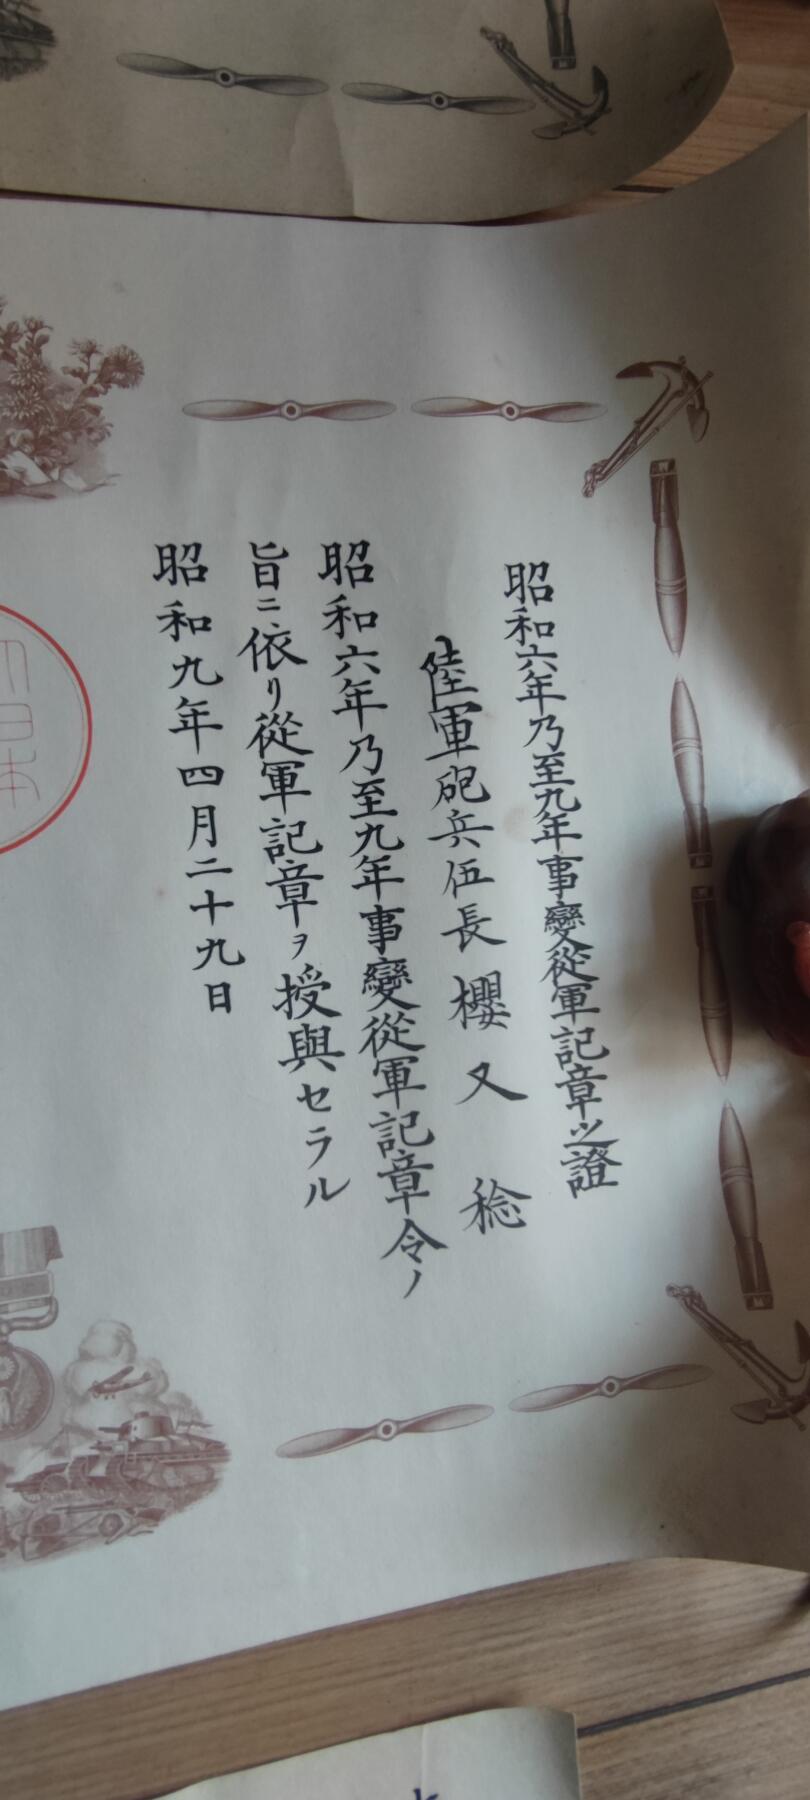 昭和六年乃至九年事變從軍記章之證
陸軍砲兵伍長 櫻又 稔
昭和六年乃至九年事變從軍記章令ノ
旨ニ依リ從軍記章ヲ授與セラル
昭和九年四月二十九日
日本